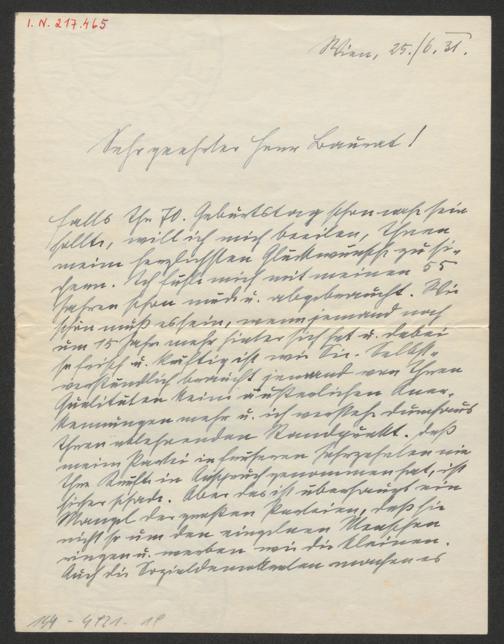 I. N. 217.465
Wien, 25./6. 31.
Sehr geehrter Herr Baurat!
Falls Ihr 70. Geburtstag schon nahe sein
sollte, will ich mich beeilen, Ihnen
meine herzlichsten Glückwünsche zu
. Ich fühle mich mit meinen 55
Jahren schon müde u. abgebraucht. Wie
schön muß es sein, wenn jemand noch
um 15 Jahre mehr hinter sich hat u. dabei
so frisch u. kräftig ist wie Sie. Selbst-
verständlich braucht jemand von Ihren
Qualitäten keine äußerlichen Aner-
kennungen mehr u. ich verstehe durchaus
Ihren ablehnenden Standpunkt. Daß
meine Partei in früheren Jahrzehnten nie
Ihre Kräfte in Anspruch genommen hat, ist
sicher schade. Aber das ist überhaupt ein
Mangel der großen Parteien, daß sie
nicht so um den einzelnen Menschen
ringen u. werben wie die kleinen.
Auch die Sozialdemokraten machen es